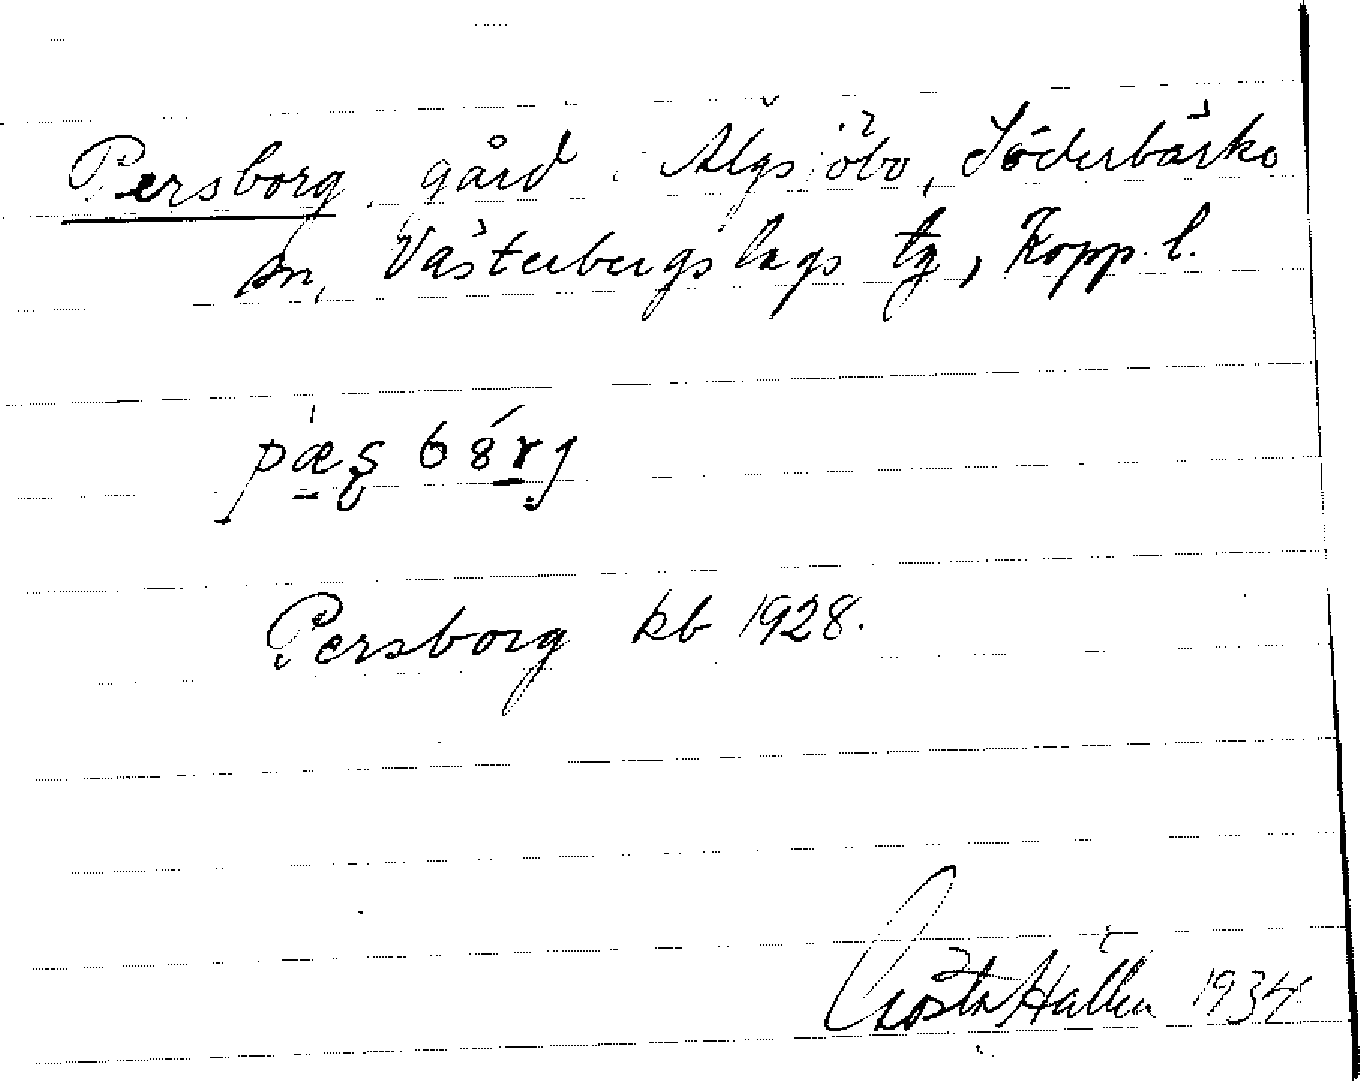 Persborg, gård i Älgsjöbo, Söderbärke
sn, Västerbergslags tg, Kopp. l.
Persborg kb 1928.
Gösta Hällén 1934